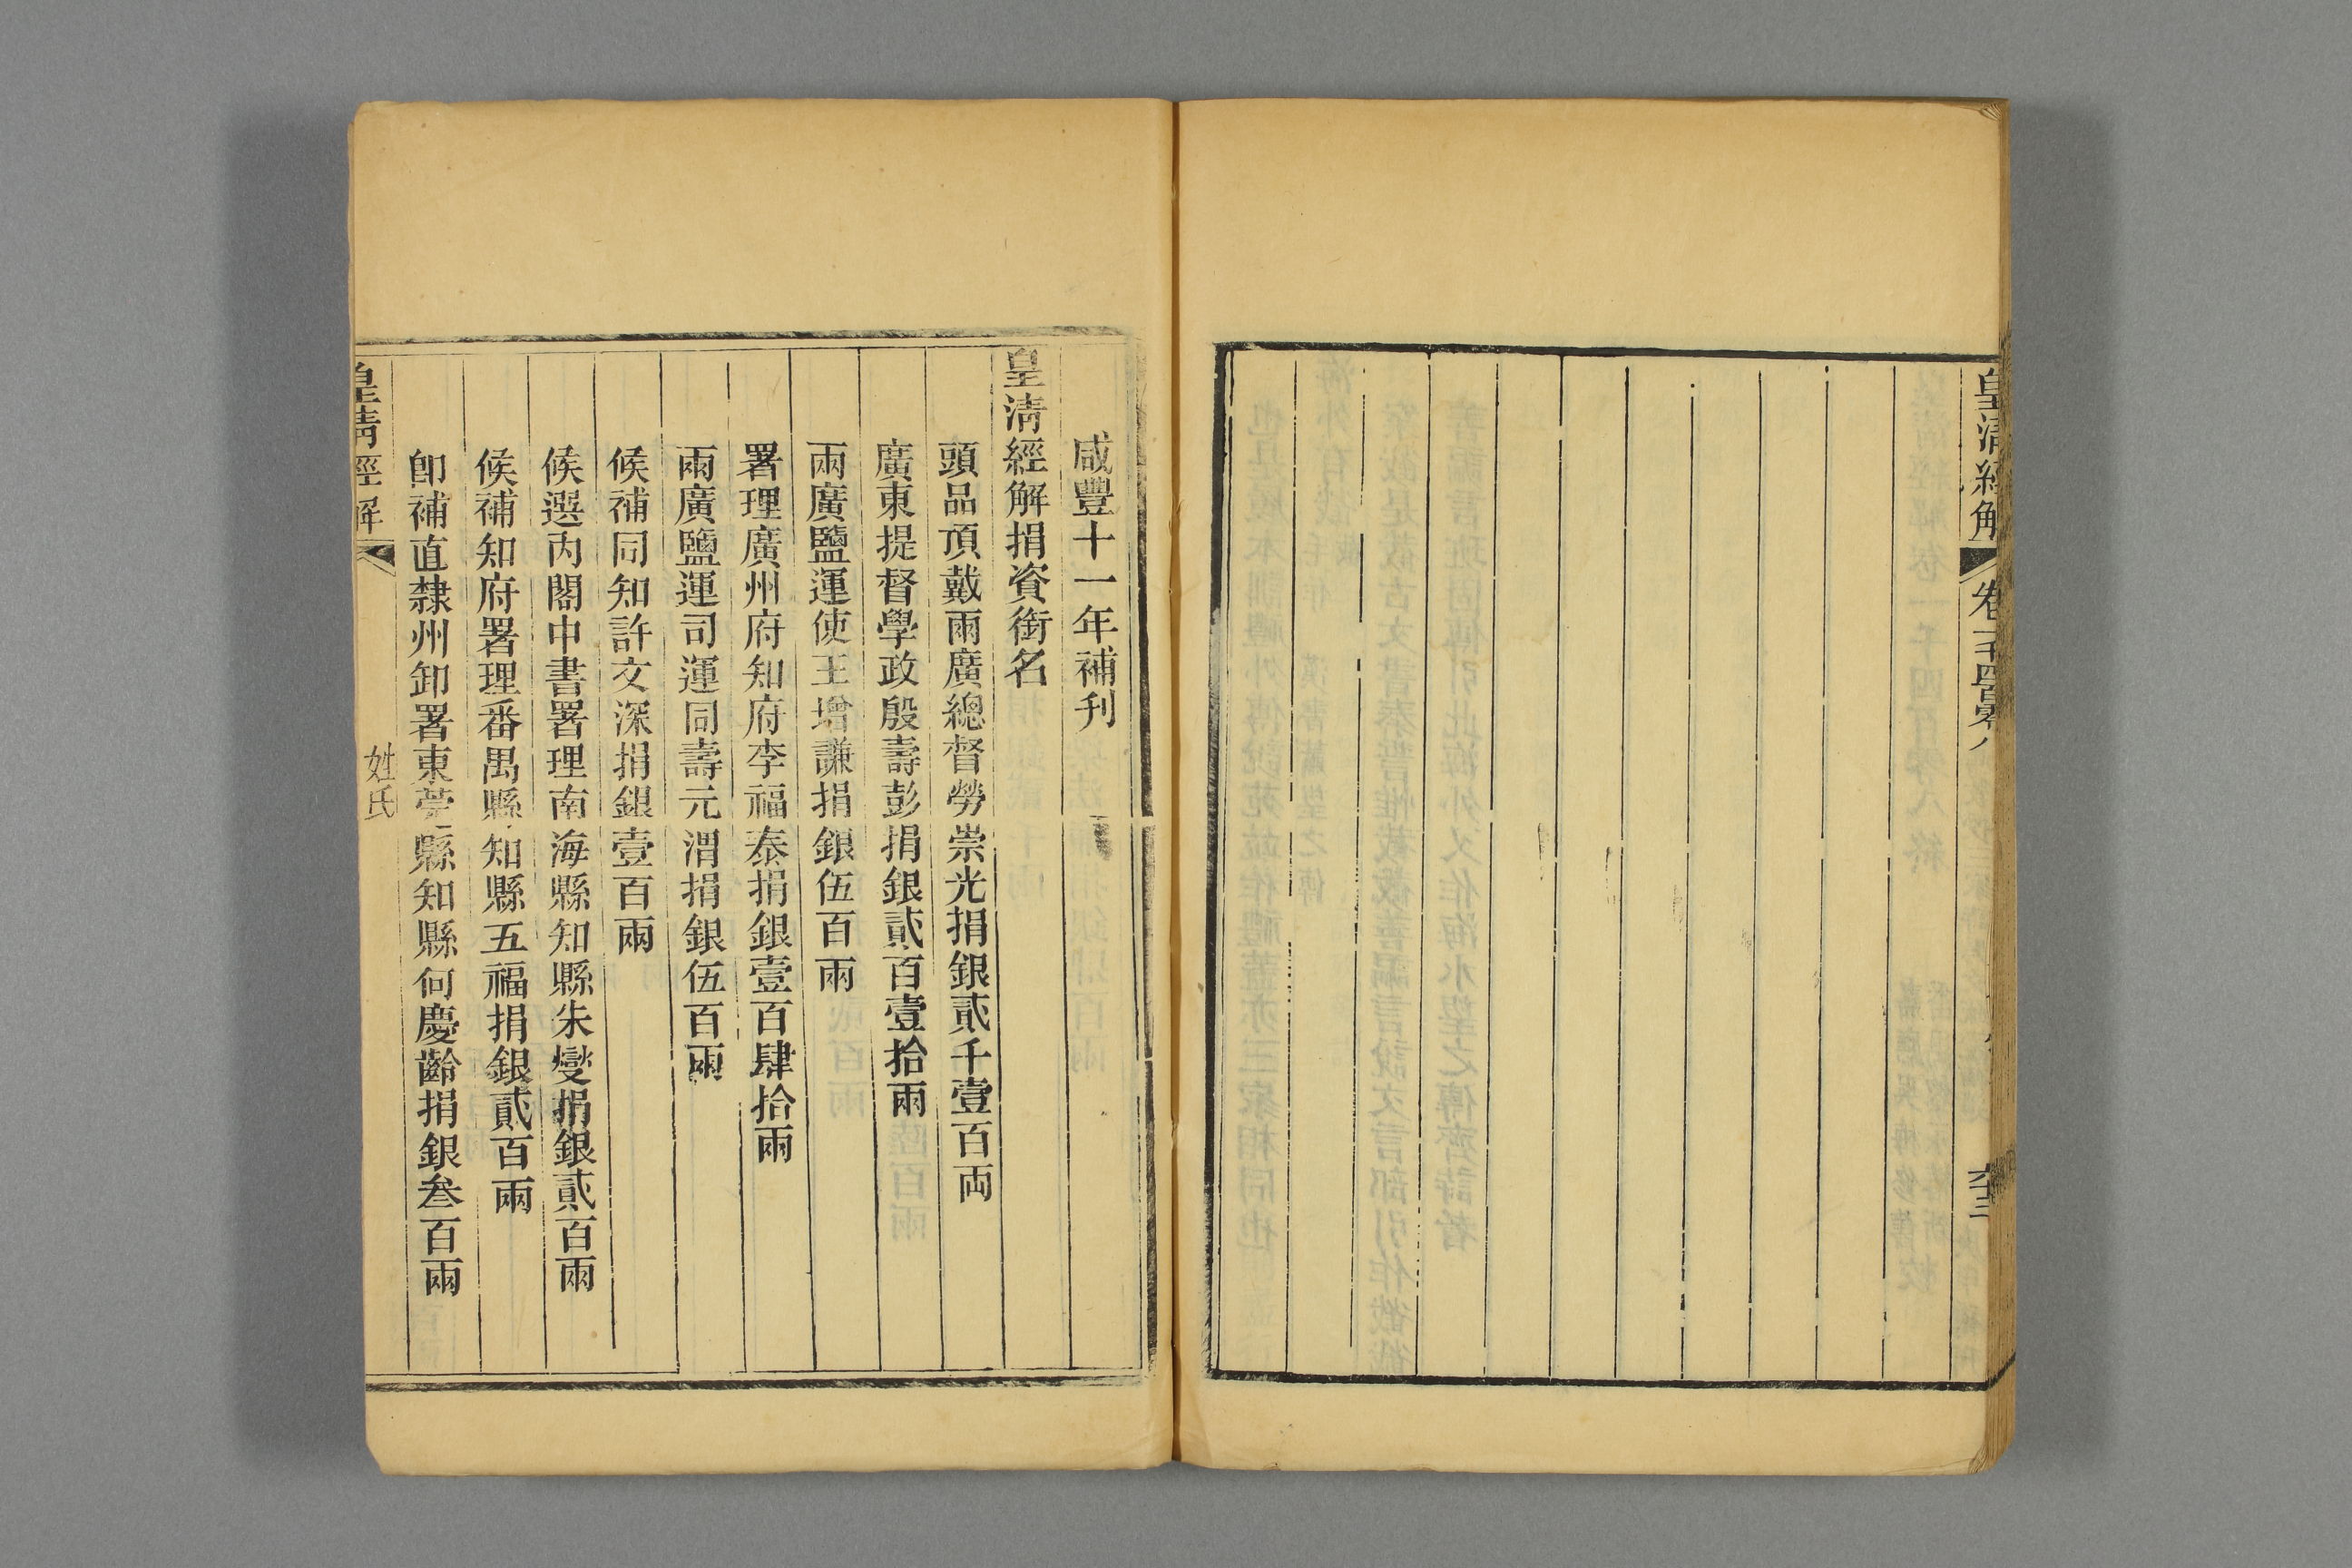 皇清經解
卷一千四百零八
咸豐十一年補刊
皇淸經解捐資銜名
頭品頂戴兩廣總督勞崇光捐銀貳千壹百両
廣東提督學政殷壽彭捐銀貳百壹拾兩
兩廣鹽運使王增謙捐銀伍百兩
署理廣州府知府李福泰捐銀壹百肆拾兩
兩廣鹽運司運同壽元渭捐銀伍百兩
候補同知許文深捐銀壹百兩
候選內閣中書署理南海縣知縣朱燮捐銀貳百兩
候補知府署理番禺縣知縣五福捐銀貳百兩
卽補直隸州卸署東莞縣知縣何慶齡捐銀叁百兩
皇淸經解
姓氏